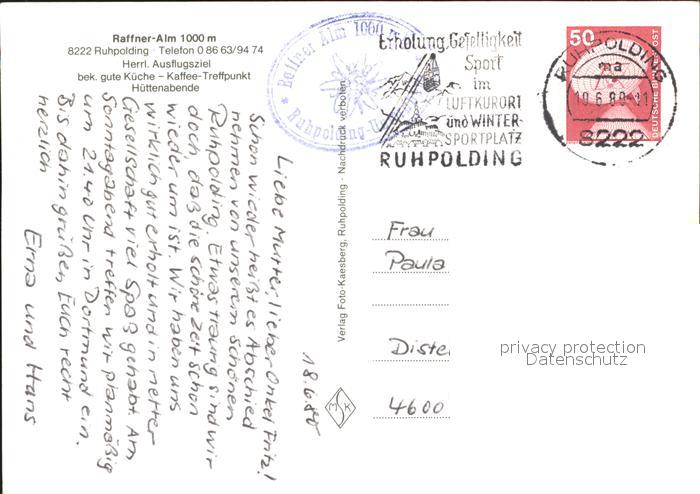 Raffner-Alm 1000 m
8222 Ruhpolding · Telefon 0 86 63/94 74
Herrl. Ausflugsziel
bek. gute Küche – Kaffee-Treffpunkt
Hüttenabende
Raffner Alm 1000
Ruhpolding-U
Erholung, Geselligkeit
Sport
im
LUFTKURORT
und WINTER-
SPORTPLATZ
RUHPOLDING
RUHPOLDING
ma
8222
50
DEUTSCHE BUNDESPOST
Verlag Foto-Kaesberg, Ruhpolding · Nachdruck verboten
18.6.80
Liebe Mutter lieber Onkel Fritz!
Schon wieder heißt es Abschied
nehmen von unserem schönen
Ruhpolding. Etwas traurig sind wir
doch, daß die schöne Zeit schon
wieder um ist. Wir haben uns
wirklich gut erholt und in netter
Gesellschaft viel Spaß gehabt. Am
Sonntagabend treffen wir planmäßig
um 21.40 Uhr in Dortmund ein.
Bis dahin grüßen Euch recht
herzlich
Erna und Hans
Frau
Paula
Diste
4600
MSK
privacy protection
Datenschutz